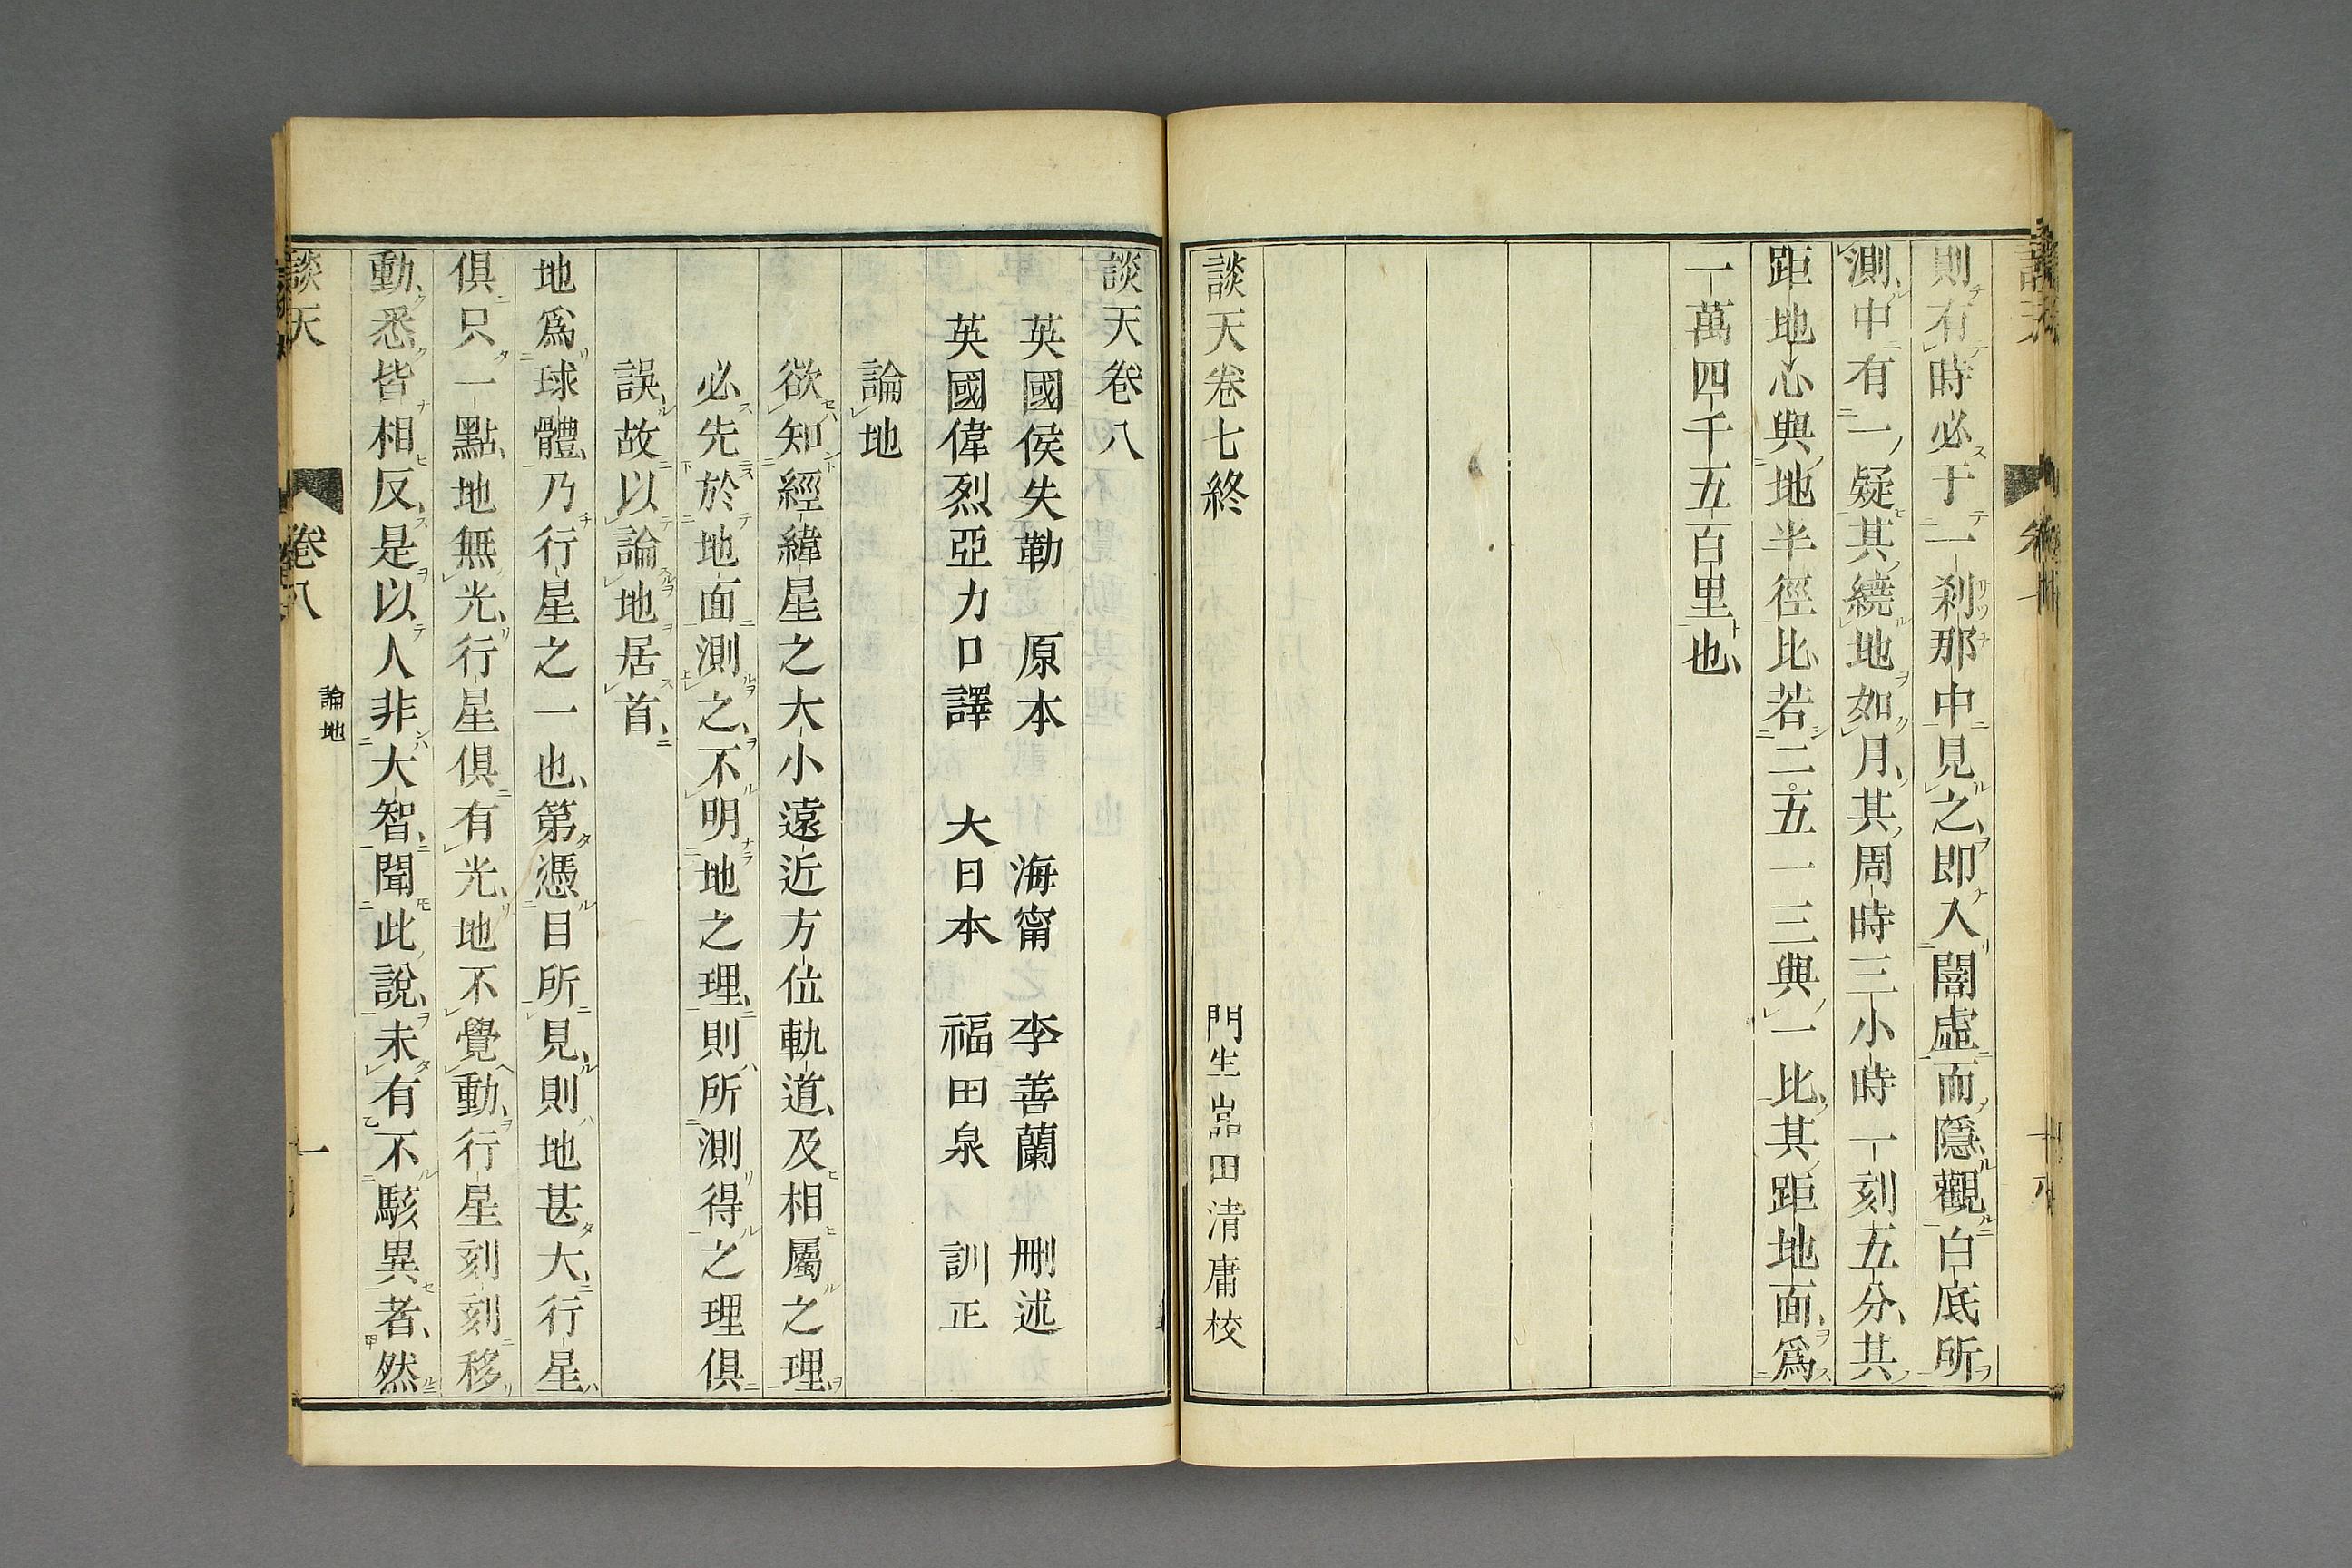 則有時必于一剎那中見之即入闇虛而隱觀白底所
測中有一疑其繞地如月其周時三小時一刻五分其
距地心與地半徑比若二五一三與一比其距地面爲
一萬四千五百里也
談天卷七終 門生嵓田清庸校
談天卷八
英國侯失勒 原本 海甯 李善蘭 刪述
英國偉烈亞力口譯 大日本 福田泉 訓正
論地
欲知經緯星之大小遠近方位軌道及相屬之理
必先於地面測之不明地之理則所測得之理俱
誤故以論地居首
地爲球體乃行星之一也第憑目所見則地甚大行星
俱只一點地無光行星俱有光地不覺動行星刻刻移
動悉皆相反是以人非大智聞此說未有不駭異者然
談天 卷八 論地 一